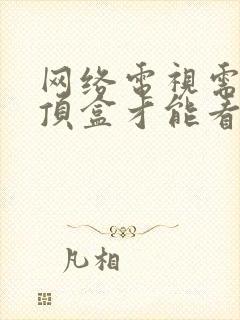 网络電視需
頂盒才能看
凡相